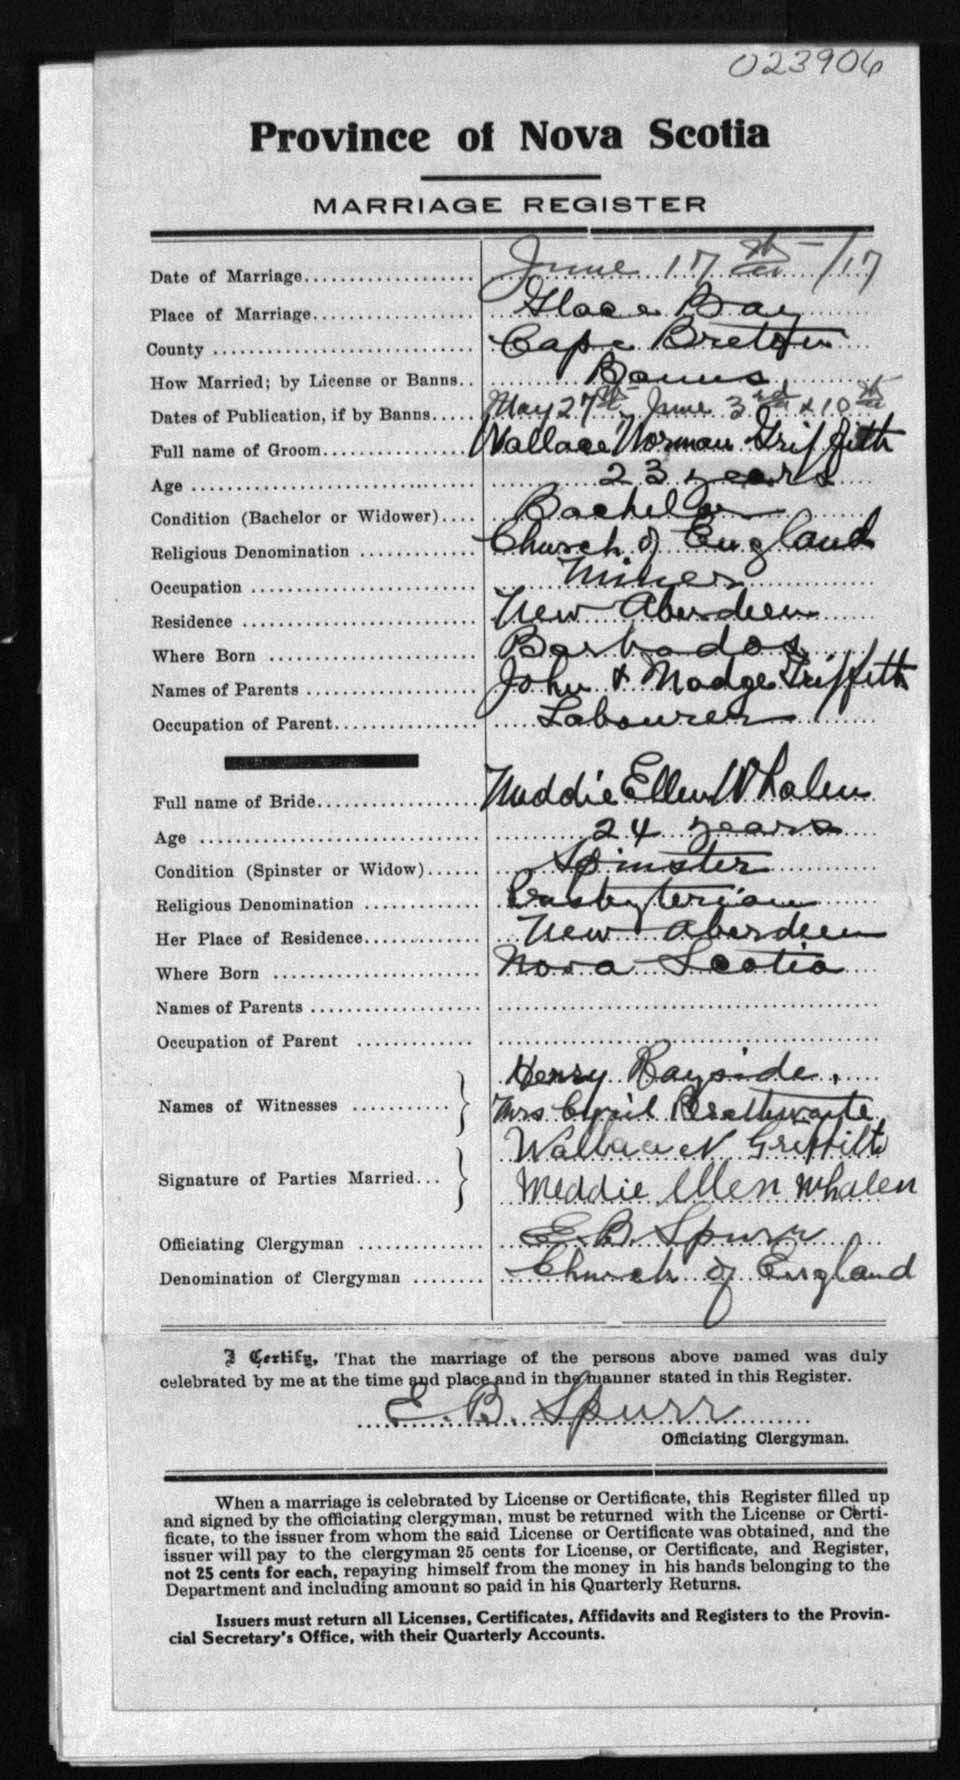 023906
Province of Nova Scotia
MARRIAGE REGISTER
Date of Marriage.................... June 17th /17
Place of Marriage................... Glace Bay
County .............................. Cape Breton
How Married; by License or Banns.. Banns
Dates of Publication, if by Banns..... May 27th, June 3rd & 10th
Full name of Groom.................. Wallace Norman Griffith
Age ................................. 23 years
Condition (Bachelor or Widower).... Bachelor
Religious Denomination ............. Church of England
Occupation .......................... Miner
Residence ........................... New Aberdeen
Where Born ........................ Barbados
Names of Parents ................... John & Madge Griffith
Occupation of Parent................ Labourer
Full name of Bride................... Maddie Ellen Whalen
Age ................................. 24 years
Condition (Spinster or Widow)...... Spinster
Religious Denomination ............ Presbyterian
Her Place of Residence............. New Aberdeen
Where Born ........................ Nova Scotia
Names of Parents ....................
Occupation of Parent ..............
Henry Bayside,
Names of Witnesses ........... Mrs Cyril Brathwaite
Wallace N Griffith
Signature of Parties Married... Meddie Ellen Whalen
Officiating Clergyman ............. E. B. Spurr
Denomination of Clergyman ........ Church of England
I Certify, That the marriage of the persons above named was duly
celebrated by me at the time and place and in the manner stated in this Register.
E. B. Spurr
Officiating Clergyman.
When a marriage is celebrated by License or Certificate, this Register filled up
and signed by the officiating clergyman, must be returned with the License or Certi-
ficate, to the issuer from whom the said License or Certificate was obtained, and the
issuer will pay to the clergyman 25 cents for License, or Certificate, and Register,
not 25 cents for each, repaying himself from the money in his hands belonging to the
Department and including amount so paid in his Quarterly Returns.
Issuers must return all Licenses, Certificates, Affidavits and Registers to the Provin-
cial Secretary's Office, with their Quarterly Accounts.